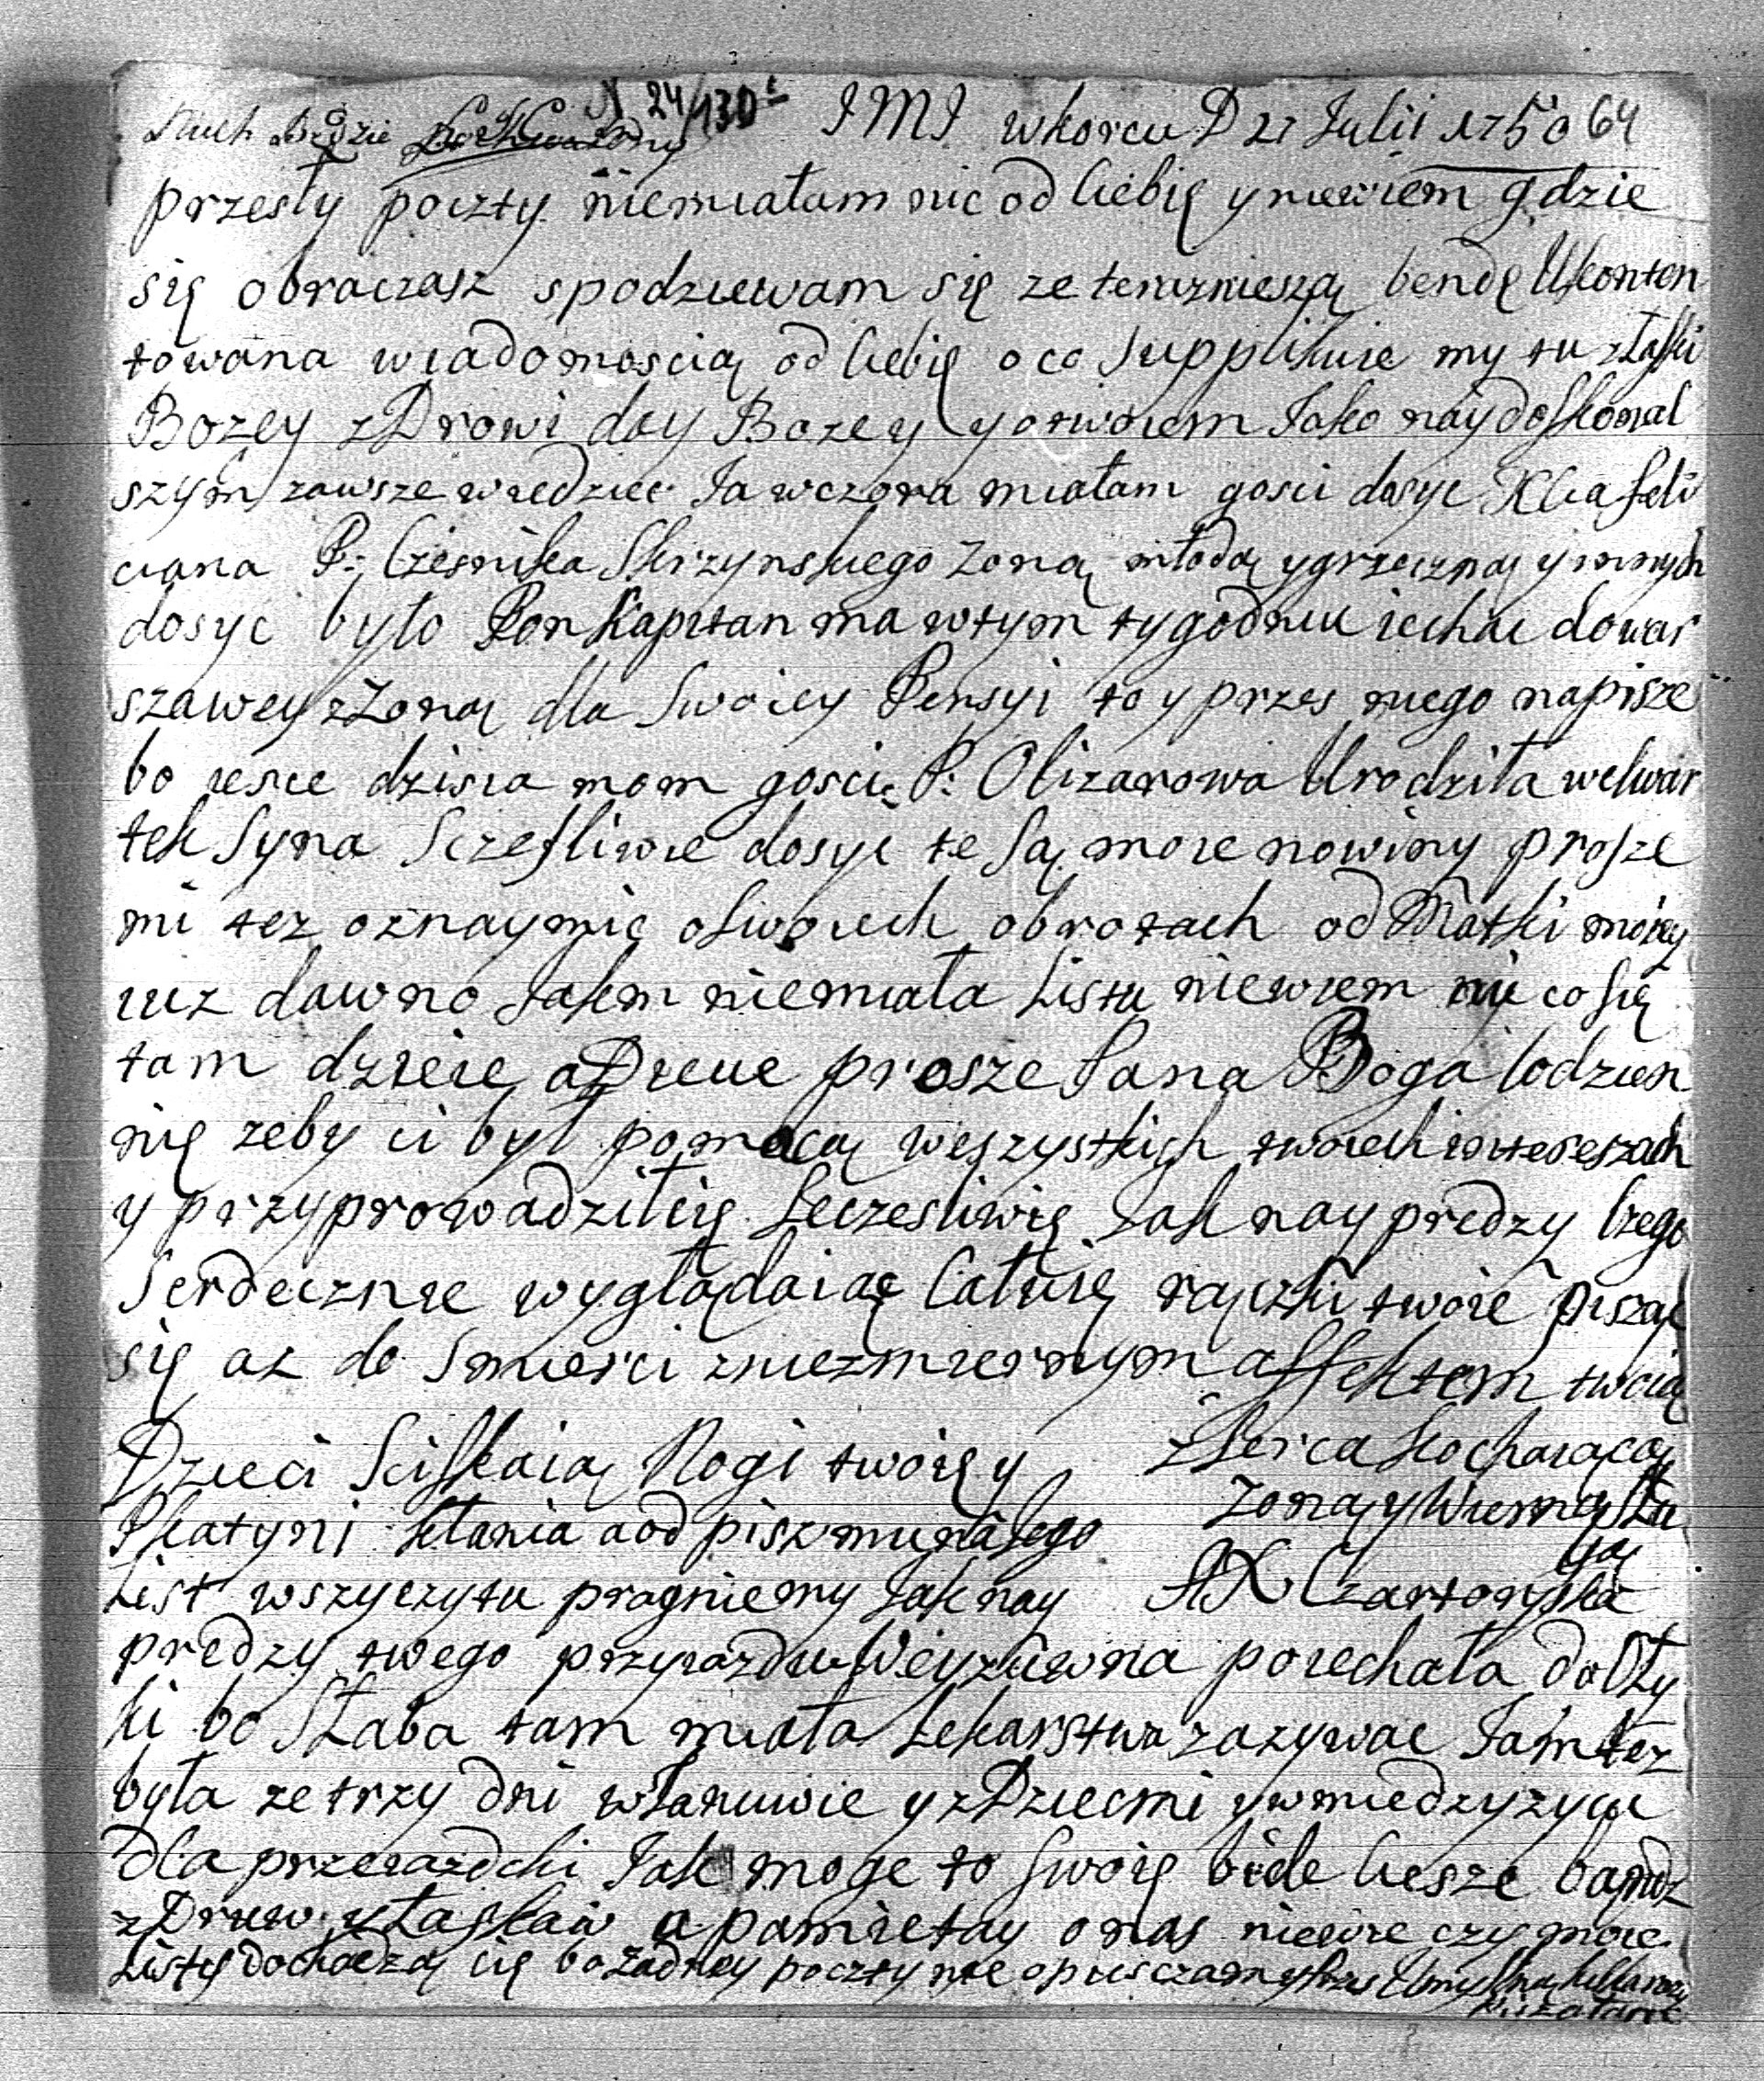 N 24/130 IMI w korcu D 27 Julii 1750 64
Niech Będzie Pochwalony
przesły poczty niemiałam nic od Ciebię y niewiem gdzie
się obraczasz spodziewam się ze teraznieszą bendę Ukonten
towana wiadomoscią od Ciebię o co Supplikuie my tu z łaski
Bozey zDrowi day Bozey y otwoiem Jako naydoskonal
szym zawsze wiedziec Ja wczora miałam gosci dosyc Xcia feli
ciana P: Czesnika Skrzynskiego Zoną młodą y grzeczną y innych
dosyc było Pon Kapitan ma wtym tygodniu iechac do war
szawey z Zoną dla Swoiey Pensyi to y przes niego napisze
bo iesce dzisia mom gosci P: Olizarowa Urodziła weczwar
tek Syna Sczesliwie dosyc te Są moie nowiny prosze
mi tez oznaymic oSwoiech obrotach od Matki moiey
iuz dawno Jakem niemiała Listu niewiem nic co się
tam dzieie a Ja Pana Boga Codzien
nię zeby ci był pomocą weszystkich twoiech interesach
y przyprowadził cię Sczesliwię Jak nay predzy Czego
Serdecznie wyglądaiąc Całuię rączki twoie pisząc
się az do Smierci zniezmiernym affektem twoią
z Serca Kochaiącą
Zoną y Wierną Słu
gą
AX Czartoryska
Dzieci Sciskaią Nogi twoię y
kłania a od pisz mu na Jego
List wszyczy tu pragniemy Jak nay
predzy twego przyiazdu poiechała do Ołty
ki bo Słaba tam miała Lekarstwa zazywac Jam tez
była ze trzy dni w Tarnuwie y z Dziecmi y w miedzyzycu
dla przeiazdcki Jak moge to Swoię bide Ciesze bandz
zDruw y Łaskaw a pamietay o nas niewie czy moie
Listy dochodzą cię bo Zadney poczty nie opusczam y przes Umyslną kilka razy
pisałam